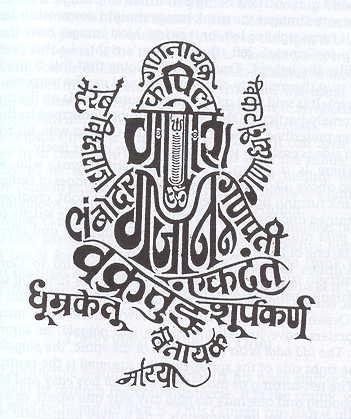 गणनायक
कपिल
हेरंब
विघ्नराजा
गणेश
लंबोदर
गजानन
गणपती
वक्रतुंड
एकदंत
धूम्रकेतू
शूर्पकर्ण
मोरया